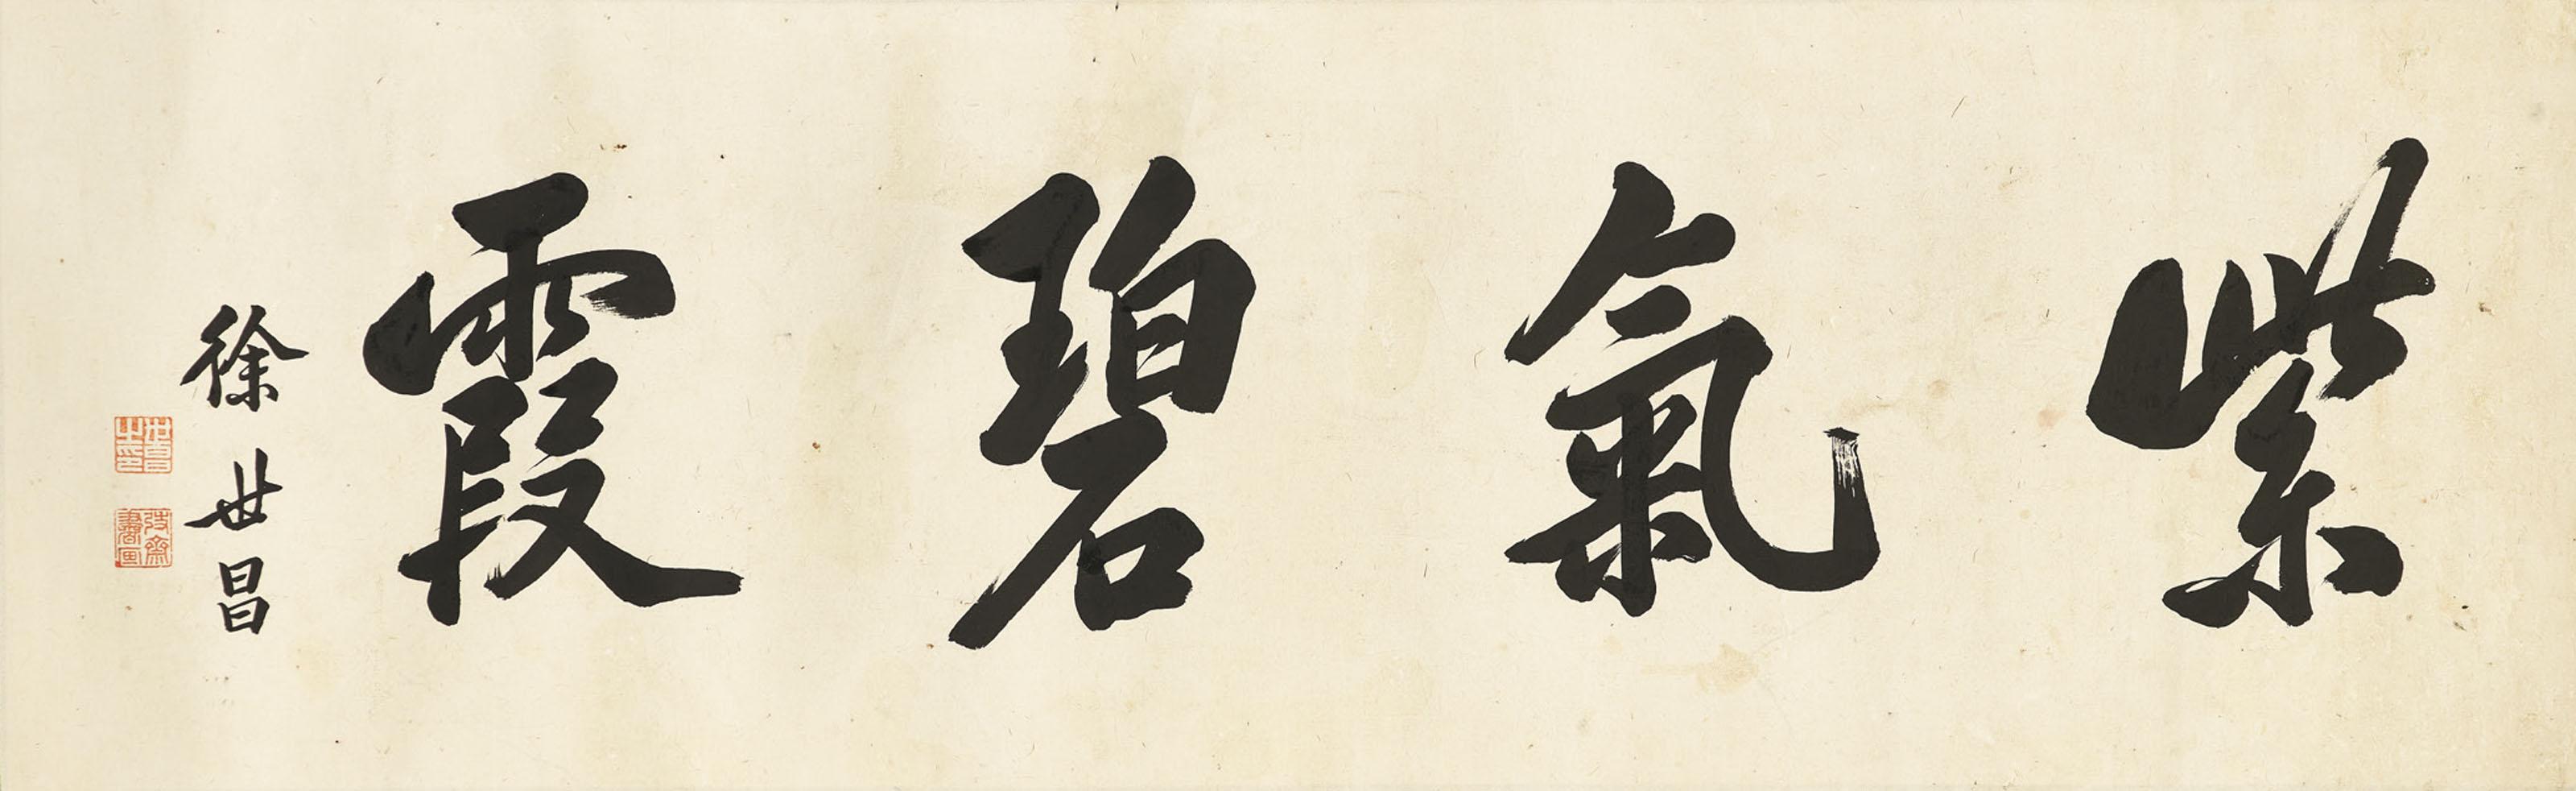 紫氣碧霞
徐世昌
世昌之印
弢齋書画